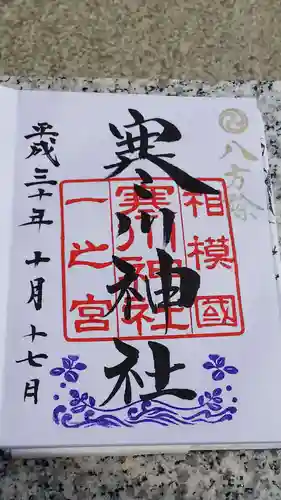 八方除
相模國
寒川神社
一之宮
寒川神社
平成三十年 十月 十七日